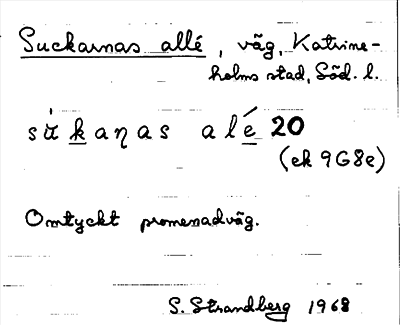 Suckarnas allé, väg, Katrine-
holms stad, Söd. l.
sùkaņas alé 20
(ek 9G8e)
Omtyckt promenadväg.
S. Strandberg 1968